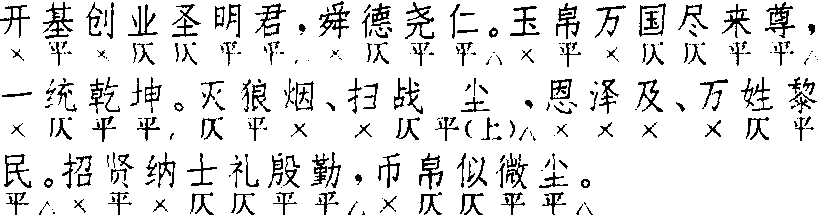 开基创业圣明君，舜德尧仁。玉帛万国尽来尊，
× 平 × 仄 仄 平 平， × 仄 平 平△ × 仄 × 仄 仄 平 平△
一统乾坤。灭狼烟、扫战 尘，恩泽及、万姓黎
× 仄 平 平， 仄 平 × × 仄 平（上）△ × × × × 仄 平
民。招贤纳士礼殷勤，币帛似微尘。
平△ × 平 × 仄 仄 平 平△ × 仄 仄 平 平△